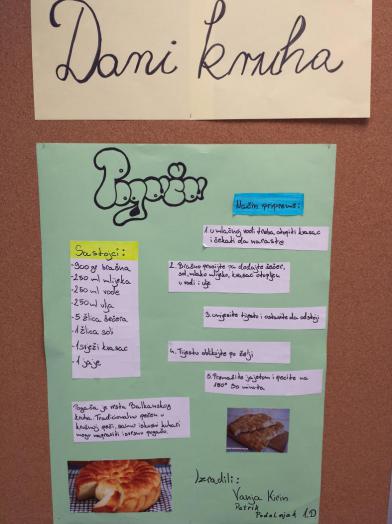 Dani kruha
Pogača
Način pripreme:
Sastojci:
-900 gr brašna
-250 ml mlijeka
-250 ml vode
-250 ml ulja
-5 žlica šećera
-1 žlica soli
-1 svježi kvasac
-1 jaje
1. U mlačnoj vodi treba otopiti kvasac
i čekati da naraste
2. Brašno prosijte pa dodajte šećer,
sol, mlako mlijeko, kvasac otopljen
u vodi i ulje
3. umijesite tijesto i ostavite da odstoji
4. Tijesto oblikujte po želji
5. Premažite jajetom i pecite na
180° 50 minuta
Pogača je vrsta Balkanskog
kruha. Tradicionalno pečen u
krušnoj peći, samo iskusni kuhari
mogu napraviti izvrsnu pogaču.
Izradili:
Vanja Kirin
Patrik
1.D